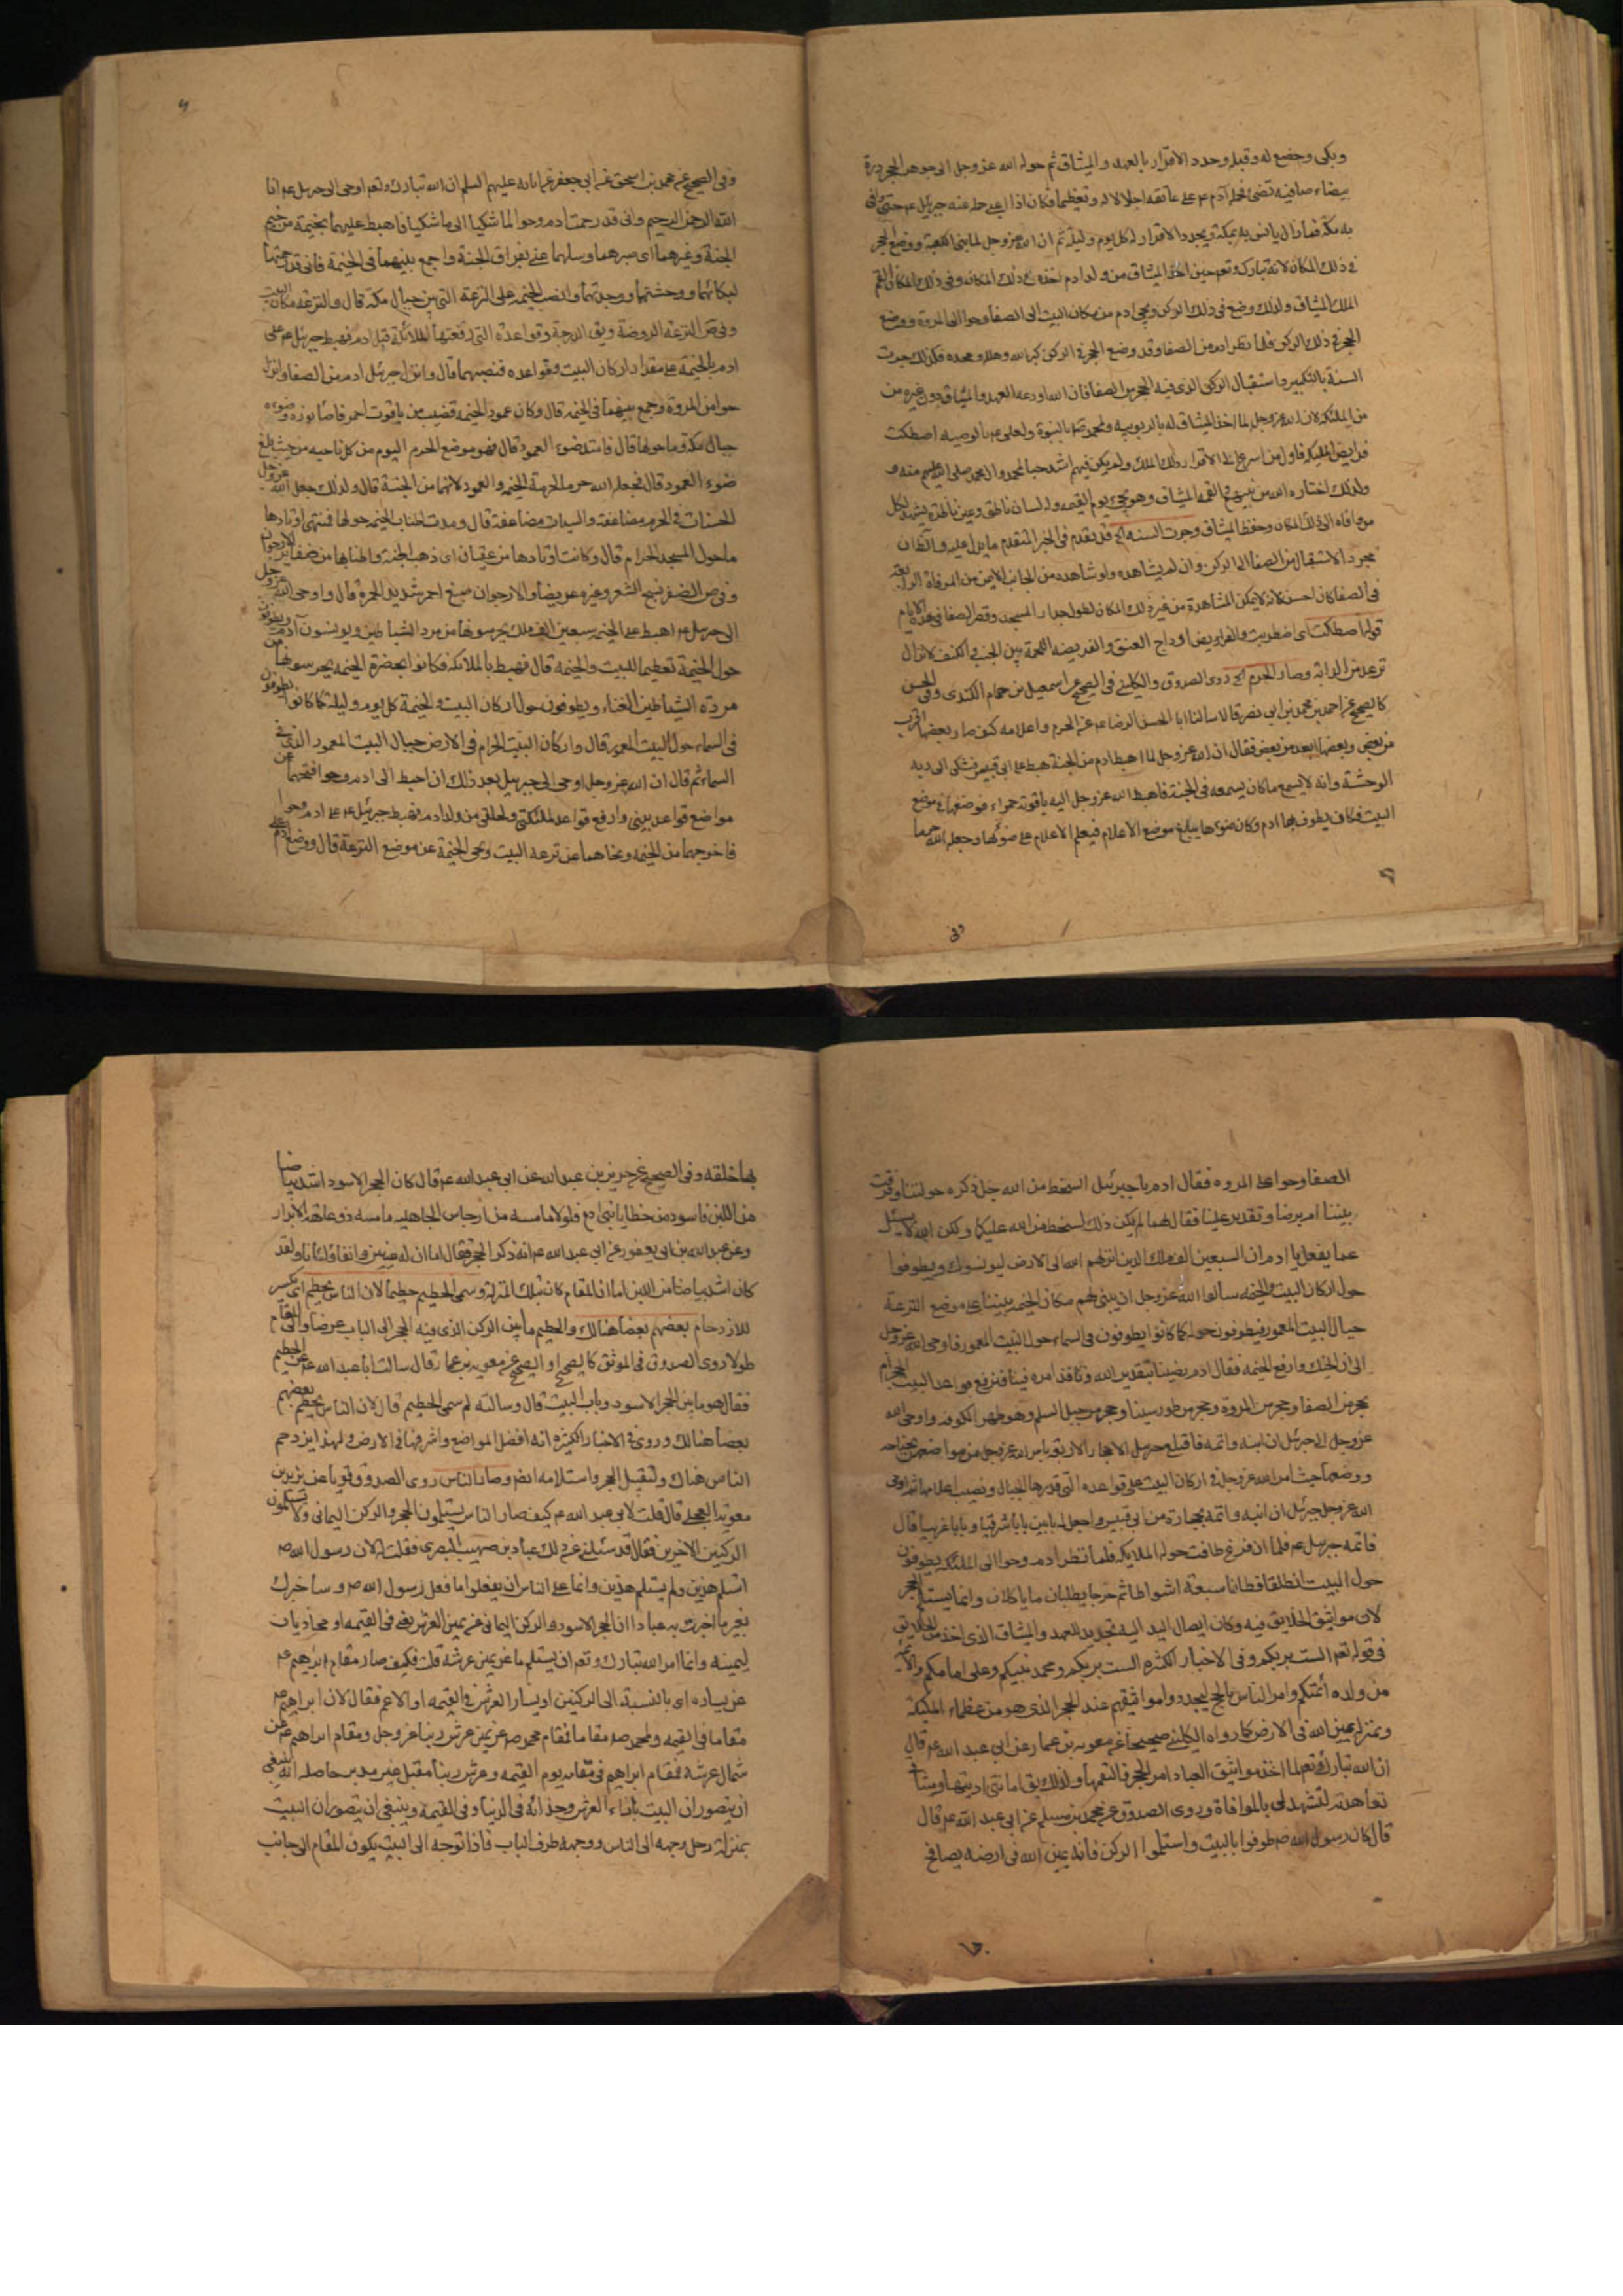 وبكى وخضع له وقبله وجدد الاقرار بالعهد والميثاق ثم حوله الله عز وجل الى جوهر الحجر درة
بيضاء صافيه تضئ فحمله آدم عم على عاتقه اجلالا له وتعظيما فكان اذا اعيى حمله عنه جبرئيل عم حتى وافى
به مكة فما زال يانس به بمكة ويجدد الاقرار له كل يوم وليلة ثم ان الله عز وجل لما بنى الكعبة ووضع الحجر
في ذلك المكان لانه تبارك وتعم حين اخذ الميثاق من ولد ادم اخذه في ذلك المكان وفي ذلك المكان القم
الملك الميثاق ولذلك وضع في ذلك الركن ونحى ادم من مكان البيت الى الصفا وحوا الى المروة ووضع
الحجر في ذلك الركن فلما نظر ادم من الصفا وقد وضع الحجر في الركن كبر الله وهلله ومجده فلذلك جرت
السنة بالتكبير واستقبال الركن الذي فيه الحجر من الصفا فان الله اودعه العهد والميثاق دون غيره من
من الملئكة لان الله عز وجل لما اخذ الميثاق له بالربوبيه ولمحمد صم بالنبوة ولعلى عم بالوصيه اصطكت
فرايص الملئكة فاول من اسرع الى الاقرار ذلك الملك ولم يكن فيهم اشد حبا لمحمد وال محمد صلى الله عليهم منه و
ولذلك اختاره الله من بينهم والقمه الميثاق وهو يجئ يوم القيمه وله لسان ناطق وعين ناظرة يشهد لكل
من وافاه الى ذلك المكان وحفظ الميثاق وجرت السنه الخ قد تقدم في الخبر المتقدم ما يدل عليه والظان
بمجرد الاستقبال من الصفا الى الركن وان لم يشاهده ولو شاهده من الجانب الايمن من المرقاة الرابعة
في الصفا كان احسن لانه لا يمكن المشاهدة من غير ذلك المكان لطول جدار المسجد وقصر الصفا في هذه الايام
قوله اصطكت اى اضطربت والفرايص اوداج العنق والفريصه اللحمة بين الجنب والكتف لا تزال
ترعد من الدابة وصار الحرم الخ روى الصدوق والكليني في الصحيح عن اسمعيل بن همام الكندى وفي الحسن
كالصحيح عن احمد بن محمد بن ابي نصر قالا سالنا ابا الحسن الرضا عم عن الحرم واعلامه كيف صار بعضها اقرب
من بعض وبعضها ابعد من بعض فقال ان الله عز وجل لما اهبط ادم من الجنة هبط على ابي قبيس فشكى الى ربه
الوحشة وانه لا يسمع ما كان يسمعه في الجنة فاهبط الله عز وجل اليه ياقوتة حمراء فوضعها في موضع
البيت فكان يطوف بها ادم وكان ضوئها يبلغ موضع الاعلام فيعلم الاعلام على ضوئها وجعله الله حرما
وفي
وفي الصحيح عن محمد بن اسحق عن ابي جعفر عن ابائه عليهم السلم ان الله تبارك وتعم اوحى الى جبرئيل عم انا
الله الرحمن الرحيم وانى قد رحمت ادم وحوا لما شكيا الى ما شكيا فاهبط عليهما بخيمة من خيم
الجنة وعزهما اى صبرهما وسلهما عنى بفراق الجنة واجمع بينهما في الخيمة فانى قد رحمتهما
لبكائهما ووحشتهما ووحدتهما وانصب الخيمه على الترعة التى بين جبال مكة قال والترعة مكان البيت
وفي ص الترعة الروضة ويق الدرجة وقواعده التى رفعتها الملائكة قبل ادم فهبط جبرئيل عم على
ادم بالخيمة على مقدار اركان البيت وقواعده فنصبهما قال وانزل جبرئيل ادم من الصفا وانزل
حوا من المروة وجمع بينهما في الخيمه قال وكان عمود الخيمة قضيب من ياقوت احمر فاضاء نوره وضوءه
جبال مكة وما حولها قال فامتد ضوء العمود قال فهو موضع الحرم اليوم من كل ناحيه من حيث بلغ
ضوء العمود قال فجعله الله حرما لحرمة الخيمه والعمود لانهما من الجنة قال ولذلك جعل الله عز وجل
الحسنات في الحرم مضاعفة والسيات مضاعفة قال ومدت اطناب الخيمه حولها فمنتهى اوتادها
ما حول المسجد الحرام قال وكانت اوتادها من عقيان اى ذهب الجنة واطنابها من ضفائر الارجوان
وفي ص الضفر نسج الشعر وغيره عريضا والارجوان صبغ احمر شديد الحمرة قال واوحى الله عز وجل
الى جبرئيل عم اهبط على الخيمه سبعين الف ملك يحرسونها من مرد الشياطين ويونسون آدم ويطوفون
حول الخيمة تعظيما للبيت والخيمة قال فهبط بالملائكة فكانوا بحضرة الخيمه يحرسونها من
مردة الشياطين العتاء ويطوفون حول اركان البيت والخيمة كل يوم وليلة كما كانوا يطوفون
في السماء حول البيت المعمور قال واركان البيت الحرام في الارض حيال البيت المعمور الذى في
السماء ثم قال ان الله عز وجل اوحى الى جبرئيل بعد ذلك ان اهبط الى ادم وحوا فنحهما عن
مواضع قواعد بيتى وارفع قواعد لملئكتى ولخلقى من ولد ادم فهبط جبرئيل عم على ادم وحوا
فاخرجهما من الخيمه ونحاهما عن ترعة البيت ونحى الخيمة عن موضع الترعة قال ووضع ادم على
الصفا وحوا على المروه فقال ادم يا جبرئيل السخط من الله جل ذكره حولتنا وفرقت
بيننا ام برضا وتقدير علينا فقال لهما لم يكن ذلك لسخط من الله عليكما ولكن الله لا يسئل
عما يفعل يا ادم ان السبعين الف ملك الذين انزلهم الله الى الارض ليونسوك ويطوفوا
حول اركان البيت والخيمه سالوا الله عز وجل ان يبنى لهم مكان الخيمه بيتا على موضع الترعة
حيال البيت المعمور فيطوفون حوله كما كانوا يطوفون في السماء حول البيت المعمور فاوحى الله عز وجل
الى ان انحيك وارفع الخيمه فقال ادم رضينا بتقدير الله ونافذ امره فينا فرفع قواعد البيت الحرام
بحجر من الصفا وحجر من المروة وحجر من طور سينا وحجر من جبل السلم وهو ظهر الكوفه واوحى الله
عز وجل الى جبرئيل ان ابنه واتمه فاقتلع جبرئيل الاحجار الاربعة بامر الله عز وجل من مواضعهن بجناحه
ووضعها حيث امر الله عز وجل في اركان البيت على قواعده التى قدرها الجبار ونصب اعلامها ثم اوحى
الله عز وجل جبرئيل ان ابنه واتمه بحجارة من ابي قبيس واجعل له بابين بابا شرقيا وبابا غربيا قال
فاتمه جبرئيل عم فلما ان فرغ طافت حوله الملايكة فلما نظر ادم وحوا الى الملئكة يطوفون
حول البيت انطلقا فطافا سبعة اشواط ثم خرجا يطلبان ما ياكلان وانما يستلم الحجر
لان مواثيق الخلايق فيه وكان ايصال اليد اليه تجديد للعهد والميثاق الذى اخذ من الخلايق
في قوله تعم الست بربكم وفي الاخبار الكثيره الست بربكم ومحمد نبيكم وعلى امامكم والائمة
من ولده أئمتكم وامر الناس بالحج ليجددوا مواثيقهم عند الحجر الذى هو من عظماء الملئكة
وبمنزلة يمين الله في الارض كما رواه الكليني صحيحا عن معوية بن عمار عن ابي عبد الله عم قال
ان الله تبارك وتعم لما اخذ مواثيق العباد امر الحجر فالتقمها ولذلك يق امانتى اديتها وميثاقى
تعاهدته لتشهد لى بالموافاة وروى الصدوق عن محمد بن مسلم عن ابي عبد الله عم قال
قال كان رسول الله صم طوفوا بالبيت واستلموا الركن فانه يمين الله في ارضه يصافح
بها خلقه وفي الصحيح عن حريز بن عبد الله عن ابي عبد الله عم قال كان الحجر الاسود اشد بياضا
من اللبن فاسود من خطايا بنى ادم فلولا ما مسه من ارجاس الجاهليه ما مسه ذو عاهة الا برأ
وعن عبد الله بن ابي يعفور عن ابي عبد الله عم انه ذكر الحجر فقال اما ان له عينين وانفا ولسانا ولقد
كان اشد بياضا من اللبن اما ان المقام كان بتلك المنزلة وسمى الحطيم حطيما لان الناس يحطم اى يكسر
للازدحام بعضهم بعضا هنالك والحطيم ما بين الركن الذى فيه الحجر الى الباب عرضا والى المقام
طولا روى الصدوق في الموثق كالصحيح او الصحيح عن معوية بن عمار قال سالت ابا عبد الله عم عن الحطيم
فقال هو ما بين الحجر الاسود وباب البيت قال وسالته لم سمى الحطيم قال لان الناس يحطم بعضهم
بعضا هنالك وروى في الاخبار الكثيره انه افضل المواضع واشرفها في الارض ولهذا يزدحم
الناس هناك ولتقبيل الحجر واستلامه ايضا وصار الناس روى الصدوق قويا عن بريد بن
معوية العجلى قال قلت لابي عبد الله عم كيف صار الناس يستلمون الحجر والركن اليمانى ولا يستلمون
الركنين الاخرين فقال قد سئلنى عن ذلك عباد بن صهيب البصرى فقلت لان رسول الله صم
استلم هذين ولم يستلم هذين وانما على الناس ان يفعلوا ما فعل رسول الله صم وساخبرك
بغير ما اخبرت به عبادا ان الحجر الاسود والركن اليمانى عن يمين العرش يعنى في القيمه او محاذيان
ليمينه وانما امر الله تبارك وتعم ان يستلم ما عن يمين عرشه قلت فكيف صار مقام ابرهيم عم
عن يساره اى بالنسبة الى الركنين او يسار العرش في القيمه او الاعم فقال لان ابراهيم عم
مقاما في القيمه ولمحمد صم مقاما فمقام محمد صم عن يمين عرش ربنا عز وجل ومقام ابراهيم عم عن
شمال عرشه فمقام ابراهيم في مقامه يوم القيمه وعرش ربنا مقبل غير مدبر حاصله انه ينبغى
ان يتصور ان البيت بازاء العرش وحذائه في الدنيا وفي القيمه وينبغى ان يتصور ان البيت
بمنزلة رجل وجهه الى الناس ووجهه طرف الباب فاذا توجه الى البيت يكون المقام الى جانب